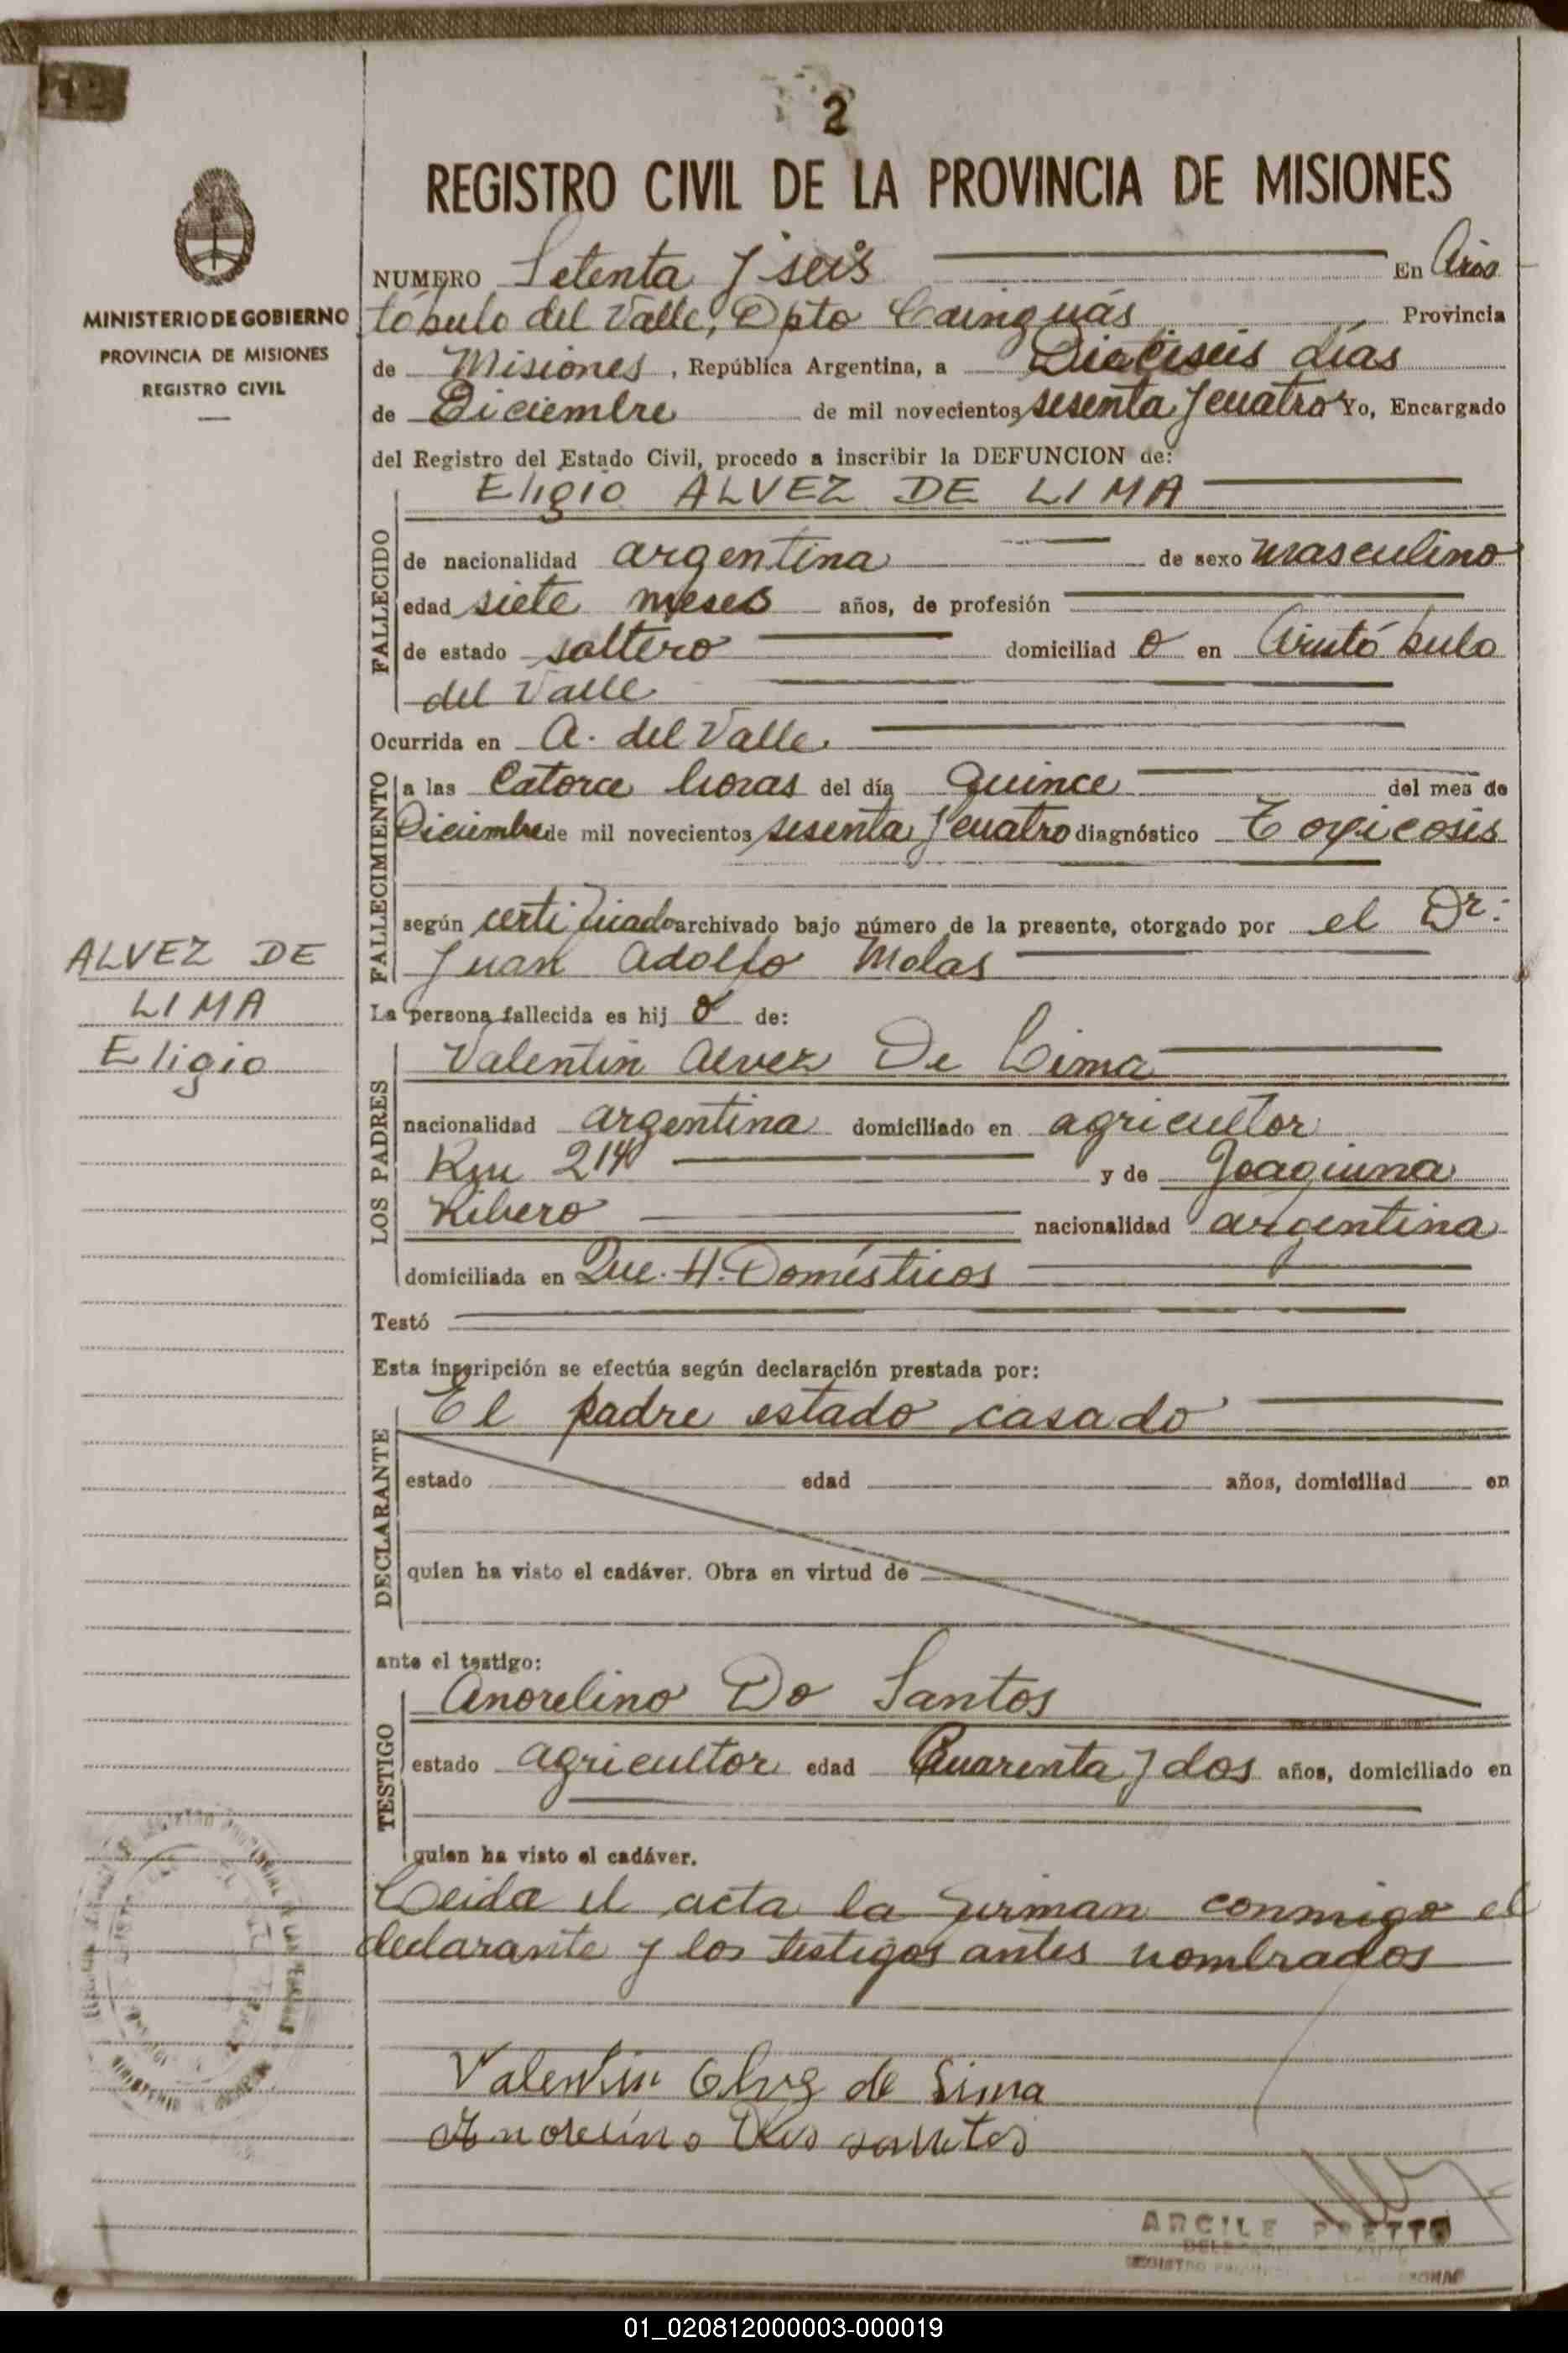 2
REGISTRO CIVIL DE LA PROVINCIA DE MISIONES
MINISTERIO DE GOBIERNO
PROVINCIA DE MISIONES
REGISTRO CIVIL
NUMERO Setenta y seis En Aris
tóbulo del Valle, Dpto Cainguás Provincia
de Misiones, República Argentina, a Dieciseis días
de Diciembre de mil novecientos sesenta y cuatro Yo, Encargado
del Registro del Estado Civil, procedo a inscribir la DEFUNCION de:
Eligio ALVEZ DE LIMA
FALLECIDO
de nacionalidad argentina de sexo masculino
edad siete meses años, de profesión
de estado soltero domiciliad o en Aristóbulo
del Valle
Ocurrida en A. del Valle.
FALLECIMIENTO
a las Catorce horas del día Quince del mes de
Diciembre de mil novecientos sesenta y cuatro diagnóstico Toxicosis
según certificado archivado bajo número de la presente, otorgado por el Dr:
Juan Adolfo Molas
ALVEZ DE
LIMA
Eligio
La persona fallecida es hij o de:
LOS PADRES
Valentin Alvez De Lima
nacionalidad argentina domiciliado en agricultor
Km 214 y de Joaquina
Ribero nacionalidad argentina
domiciliada en Que. H. Domésticos
Testó
Esta inscripción se efectúa según declaración prestada por:
DECLARANTE
El padre estado casado
estado edad años, domiciliad en
quien ha visto el cadáver. Obra en virtud de
ante el testigo:
TESTIGO
Anorelino Do Santos
estado agricultor edad Cuarenta y dos años, domiciliado en
quien ha visto el cadáver.
Leida el acta la firman conmigo el
declarante y los testigos antes nombrados
Valentin Alvez de Lima
Anorelino Dos santos
ARCILE PRETTO
01_020812000003-000019